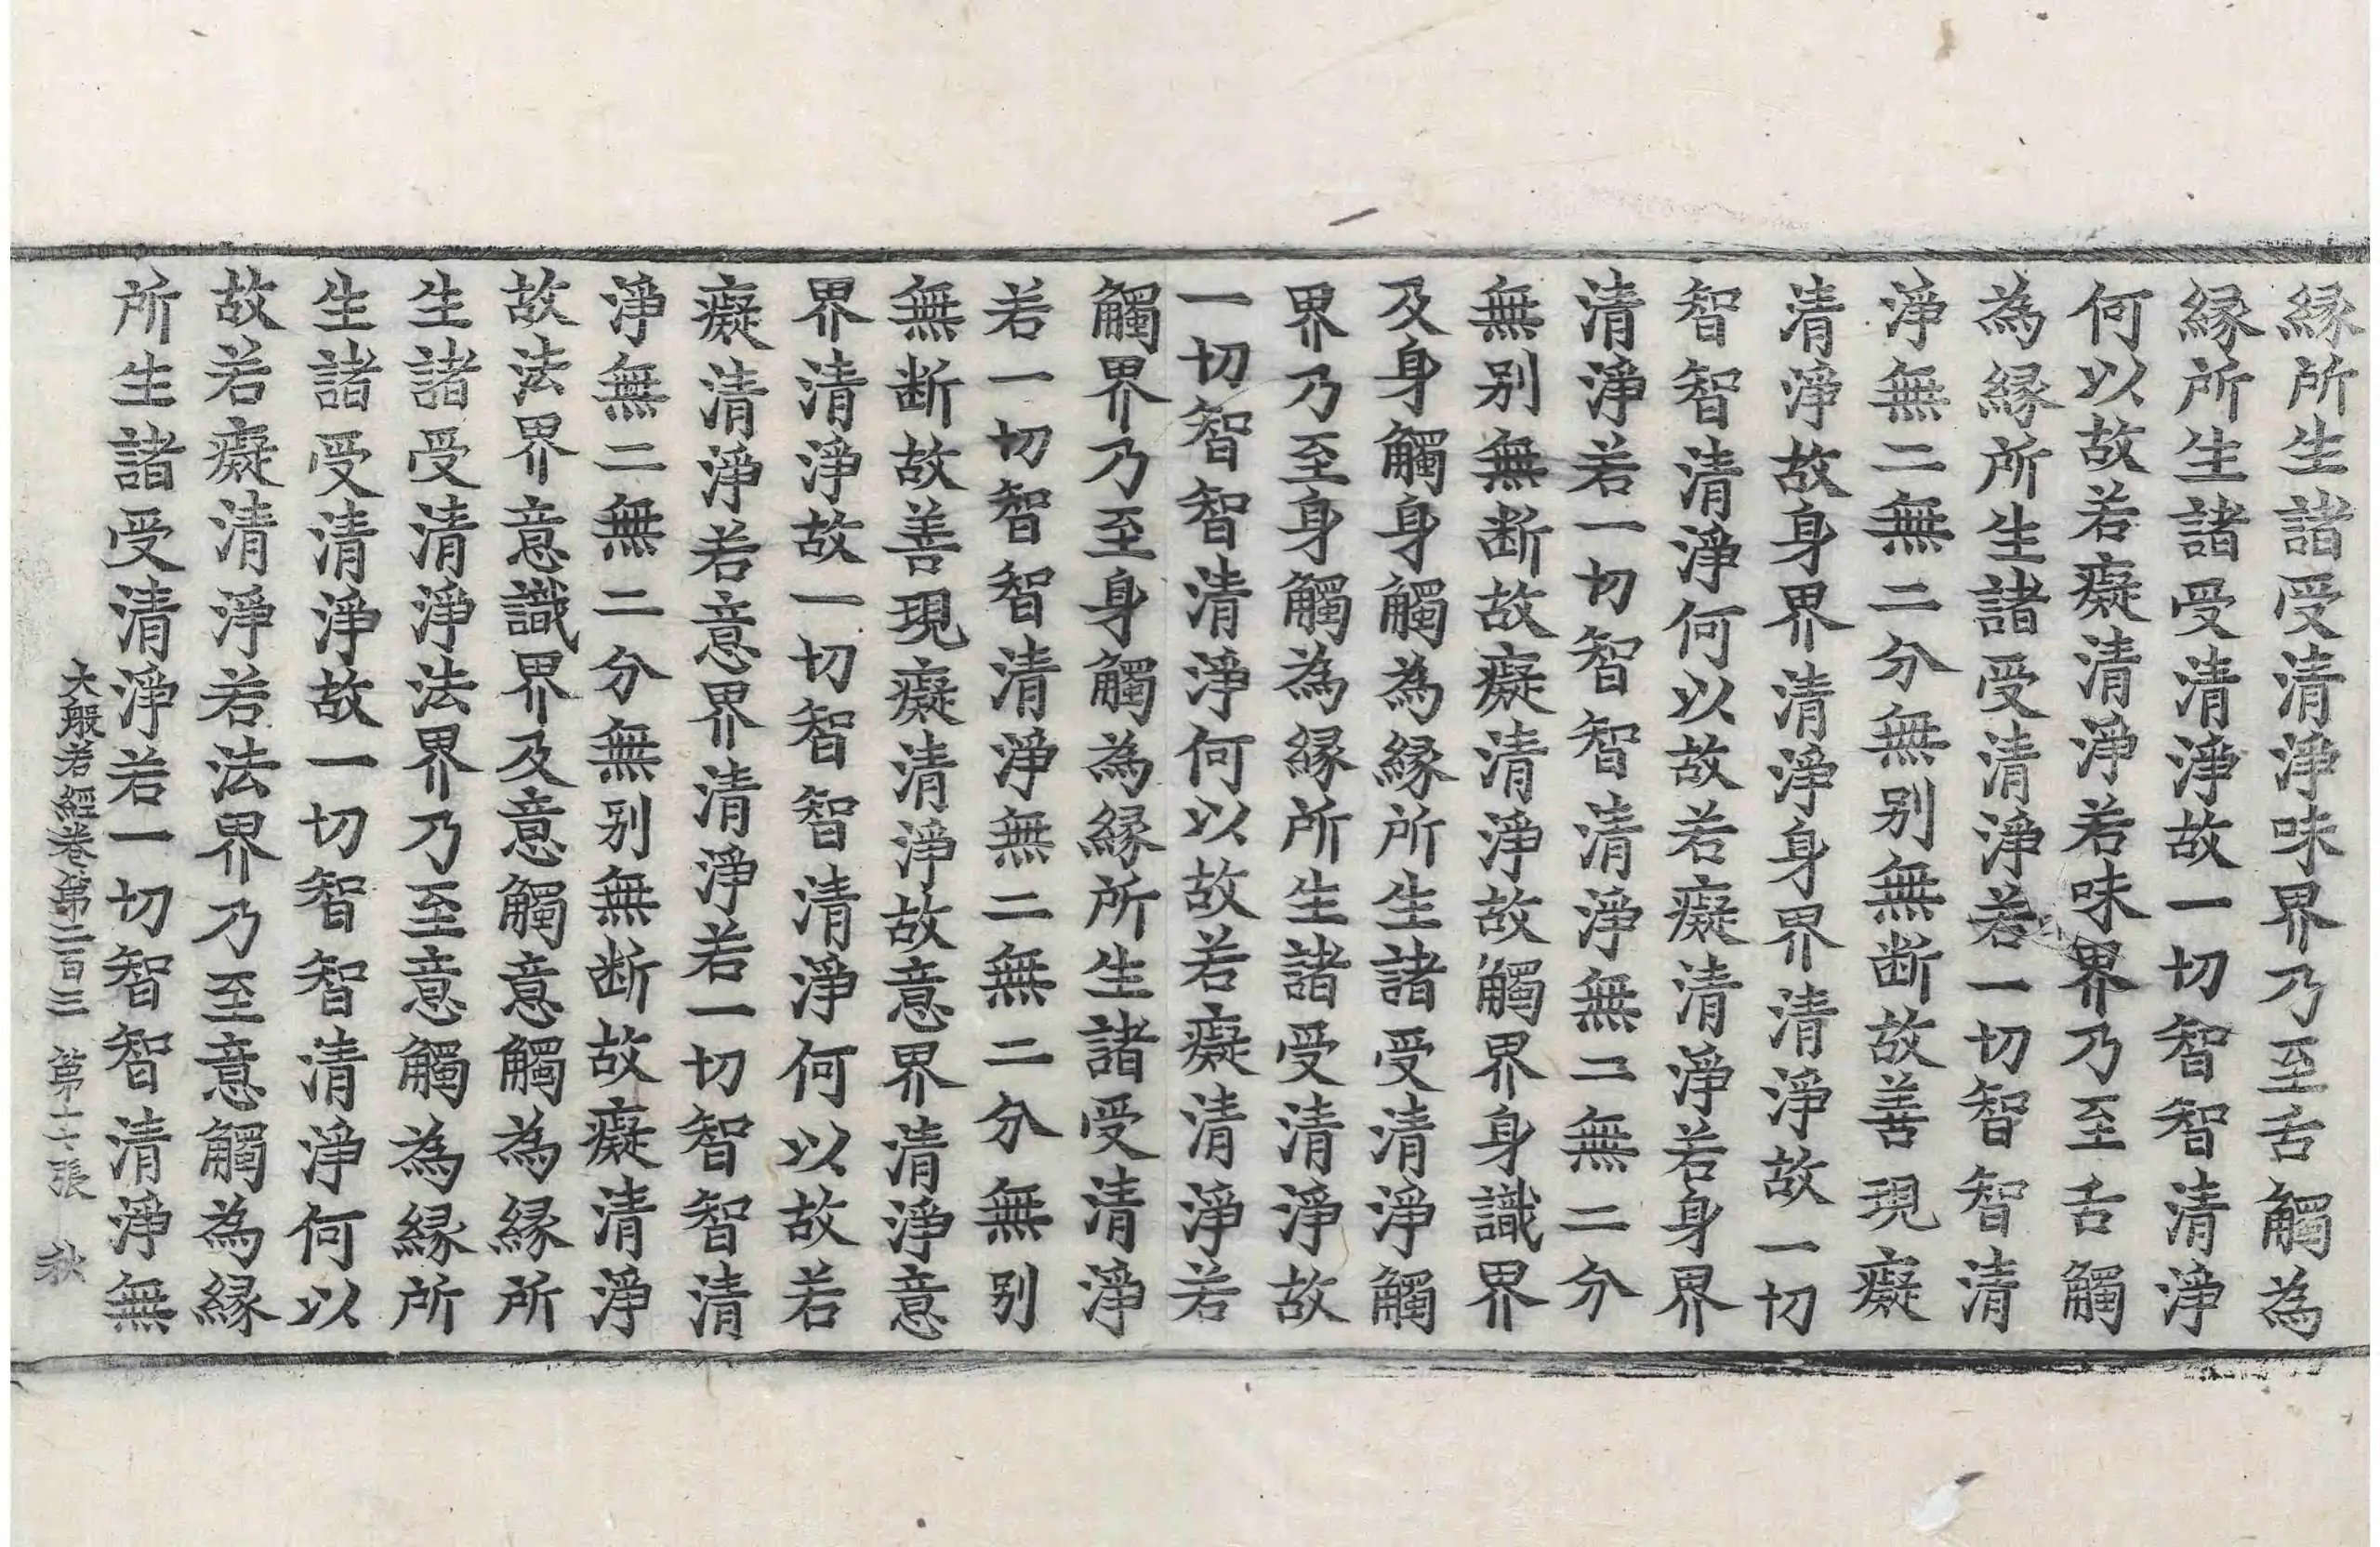 緣所生諸受清淨味界乃至舌觸為
緣所生諸受清淨故一切智智清淨
何以故若癡清淨若味界乃至舌觸
為緣所生諸受清淨若一切智智清
淨無二無二分無别無断故善現癡
清淨故身界清淨身界清淨故一切
智智清淨何以故若癡清淨若身界
清淨若一切智智清淨無二無二分
無别無断故癡清淨故觸界身識界
及身觸身觸為緣所生諸受清淨觸
界乃至身觸為緣所生諸受清淨故
一切智智清淨何以故若癡清淨若
觸界乃至身觸為緣所生諸受清淨
若一切智智清淨無二無二分無别
無断故善現癡清淨故意界清淨意
界清淨故一切智智清淨何以故若
癡清淨若意界清淨若一切智智清
淨無二無二分無别無断故癡清淨
故法界意識界及意觸意觸為緣所
生諸受清淨法界乃至意觸為緣所
生諸受清淨故一切智智清淨何以
故若癡清淨若法界乃至意觸為緣
所生諸受清淨若一切智智清淨無
大般若經卷第二百三 第十七張 秋